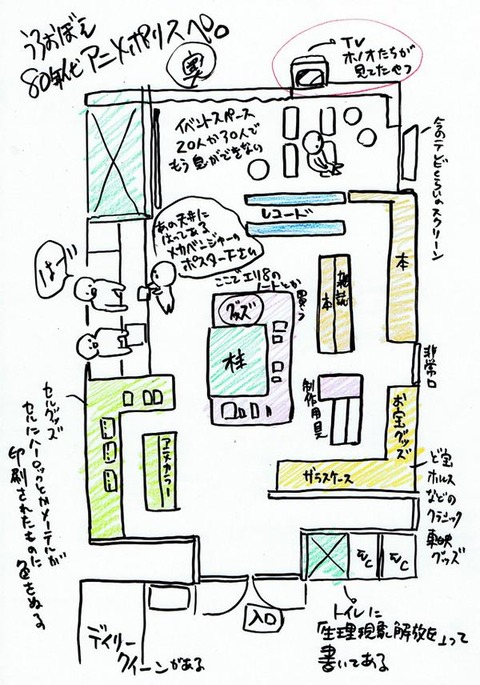 うろおぼえ
80年代 アニメポリスペロ
奥
TV
ホノオたちが
見てたやつ
イベントスペース
20人か30人で
もう息ができない
今のテレビくらいのスクリーン
レコード
本
あの天井に
はってある
メカベンジャーの
ポスター下さい
はーい
ここでエリ8の
ノートとか
買う
グッズ
柱
雑誌
本
制作用具
非常口
お宝グッズ
ガラスケース
ど宝
ホルス
などの
クラシック
東映
グッズ
セルグッズ
セルにハーロックとかメーテルが
印刷されたものに
色をぬる
アニメカラー
WC
WC
入口
トイレに
「生理現象解放を」って
書いてある
デイリー
クイーンがある